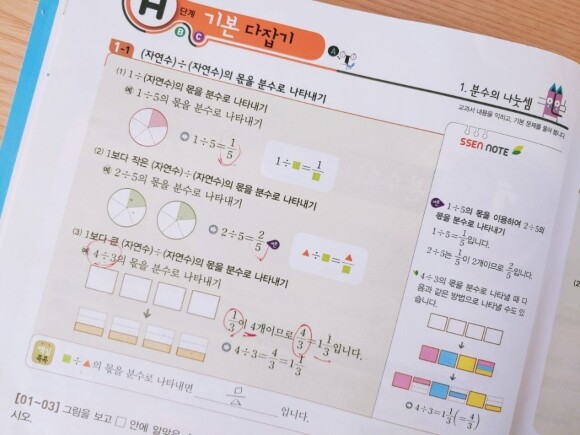 A
단계
기본 다잡기
B C
A
1-1 (자연수)÷(자연수)의 몫을 분수로 나타내기
(1) 1÷(자연수)의 몫을 분수로 나타내기
예 1÷5의 몫을 분수로 나타내기
1÷5=1/5
1÷■=1/■
(2) 1보다 작은 (자연수)÷(자연수)의 몫을 분수로 나타내기
예 2÷5의 몫을 분수로 나타내기
2÷5=2/5
▲÷■=▲/■
(3) 1보다 큰 (자연수)÷(자연수)의 몫을 분수로 나타내기
예 4÷3의 몫을 분수로 나타내기
1/3이 4개이므로 4/3=1 1/3입니다.
4÷3=4/3=1 1/3
■÷▲의 몫을 분수로 나타내면 □/△ 입니다.
[01~03] 그림을 보고 □ 안에 알맞은
시오.
1. 분수의 나눗셈
교과서 내용을 익히고, 기본 문제를 풀어 봅니다.
SSEN NOTE
1÷5의 몫을 이용하여 2÷5의
몫을 분수로 나타내기
1÷5=1/5입니다.
2÷5는 1/5이 2개이므로 2/5입니다.
4÷3의 몫을 분수로 나타낼 때 다
음과 같은 방법으로 나타낼 수도 있
습니다.
4÷3=1 1/3(=4/3)